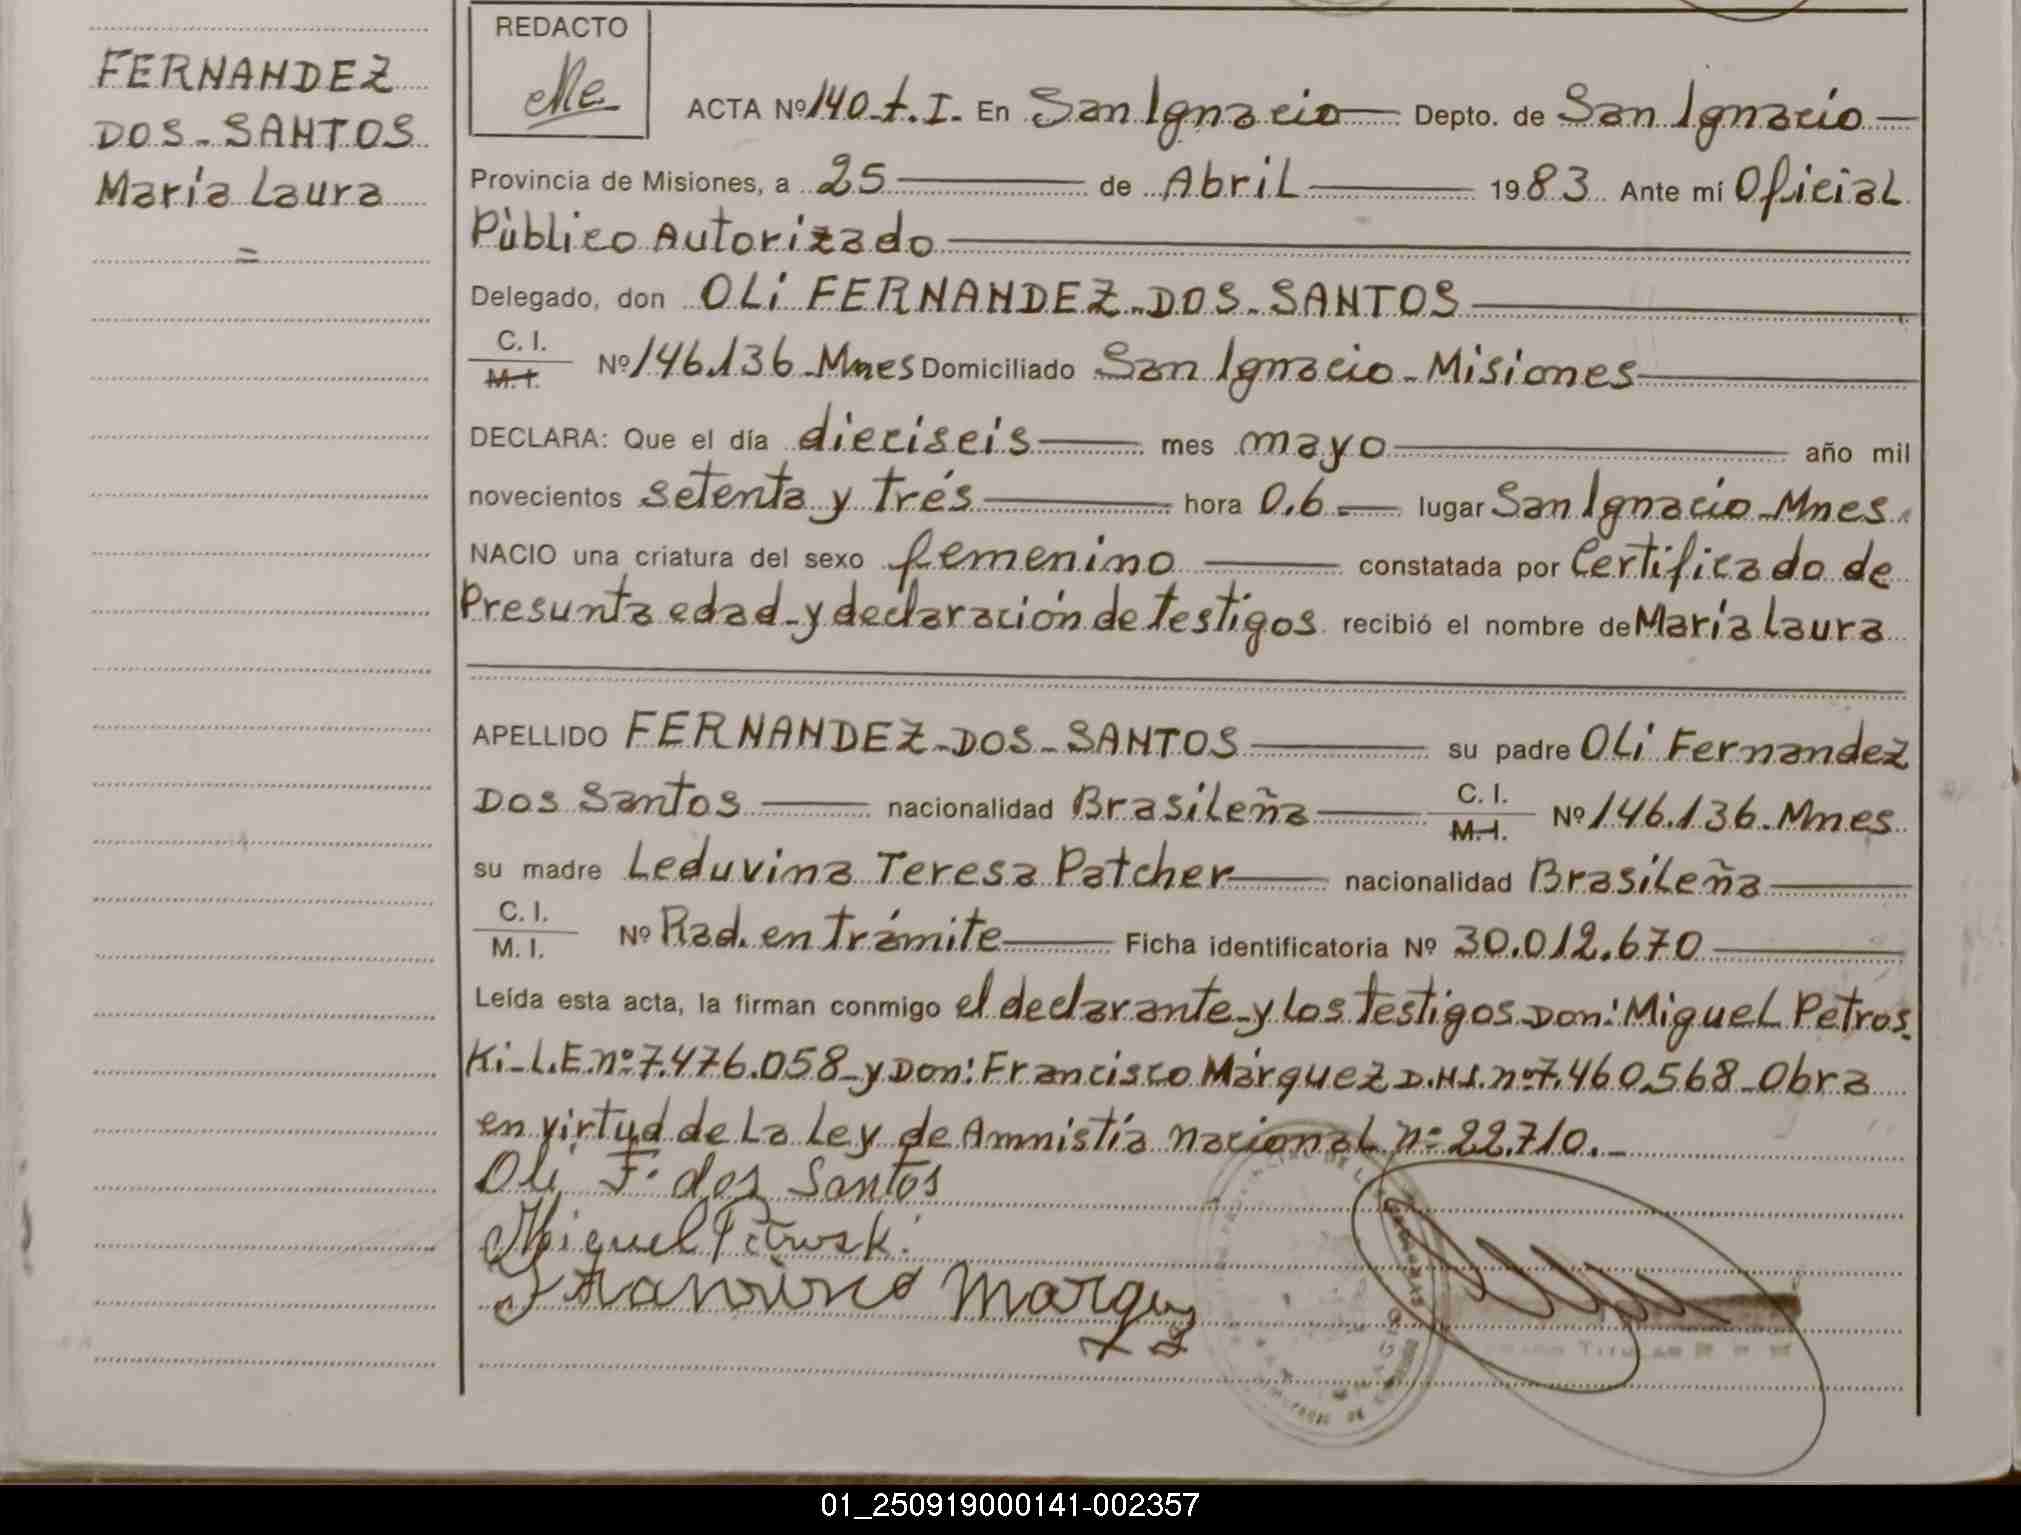 FERNANDEZ
DOS-SANTOS
María Laura
=
REDACTO
ACTA Nº 140-t.I. En San Ignacio Depto. de San Ignacio
Provincia de Misiones, a 25 de Abril 1983 Ante mí Oficial
Público Autorizado
Delegado, don OLi FERNANDEZ-DOS-SANTOS
C. I.
M. I. Nº 146.136-Mnes Domiciliado San Ignacio-Misiones
DECLARA: Que el día dieciseis mes mayo año mil
novecientos setenta y trés hora 0.6 lugar San Ignacio-Mnes.
NACIO una criatura del sexo femenino constatada por Certificado de
Presunta edad-y declaración de testigos recibió el nombre de María Laura
APELLIDO FERNANDEZ-DOS-SANTOS su padre OLi Fernandez
Dos Santos nacionalidad Brasileña C. I.
M. I. Nº 146.136-Mnes
su madre Leduvina Teresa Patcher nacionalidad Brasileña
C. I.
M. I. Nº Rad. en trámite Ficha identificatoria Nº 30.012.670
Leída esta acta, la firman conmigo el declarante-y los testigos Don: Miguel Petros-
Ki-L.E.nº 7.476.058-y Don: Francisco Márquez D.N.I. nº 7.460.568-Obra
en virtud de La Ley de Amnistía nacional nº 22.710.-
Oli F. dos Santos
Miguel Petroski
Francisco Marquez
01_250919000141-002357